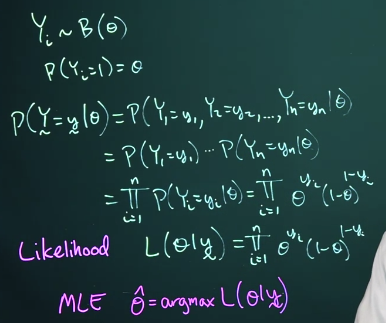 Y_i ~ B(θ)
P(Y_i=1)=θ
P(Y̰=y̰|θ)=P(Y_1=y_1, Y_2=y_2,...,Y_n=y_n|θ)
= P(Y_1=y_1)···P(Y_n=y_n|θ)
= ∏_{i=1}^{n} P(Y_i=y_i|θ) = ∏_{i=1}^{n} θ^{y_i}(1-θ)^{1-y_i}
Likelihood L(θ|y̰) = ∏_{i=1}^{n} θ^{y_i}(1-θ)^{1-y_i}
MLE θ̂=argmax L(θ|y̰)